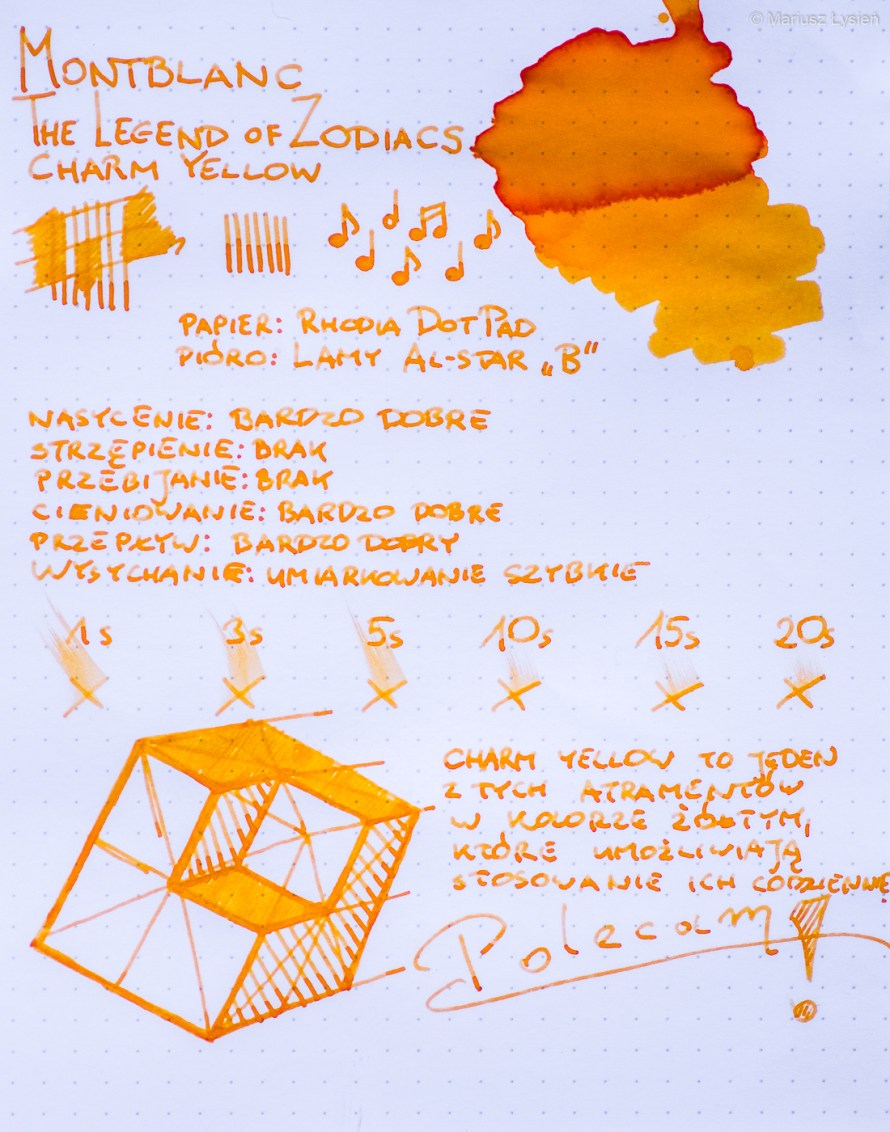 © Mariusz Łysień
MONTBLANC
THE LEGEND OF ZODIACS
CHARM YELLOW
PAPIER: RHODIA DOTPAD
PIÓRO: LAMY AL-STAR „B”
NASYCENIE: BARDZO DOBRE
STRZĘPIENIE: BRAK
PRZEBIJANIE: BRAK
CIENIOWANIE: BARDZO DOBRE
PRZEPŁYW: BARDZO DOBRY
WYSYCHANIE: UMIARKOWANIE SZYBKIE
1s 3s 5s 10s 15s 20s
CHARM YELLOW TO JEDEN
Z TYCH ATRAMENTÓW
W KOLORZE ŻÓŁTYM,
KTÓRE UMOŻLIWIAJĄ
STOSOWANIE ICH CODZIENNE
Polecam!